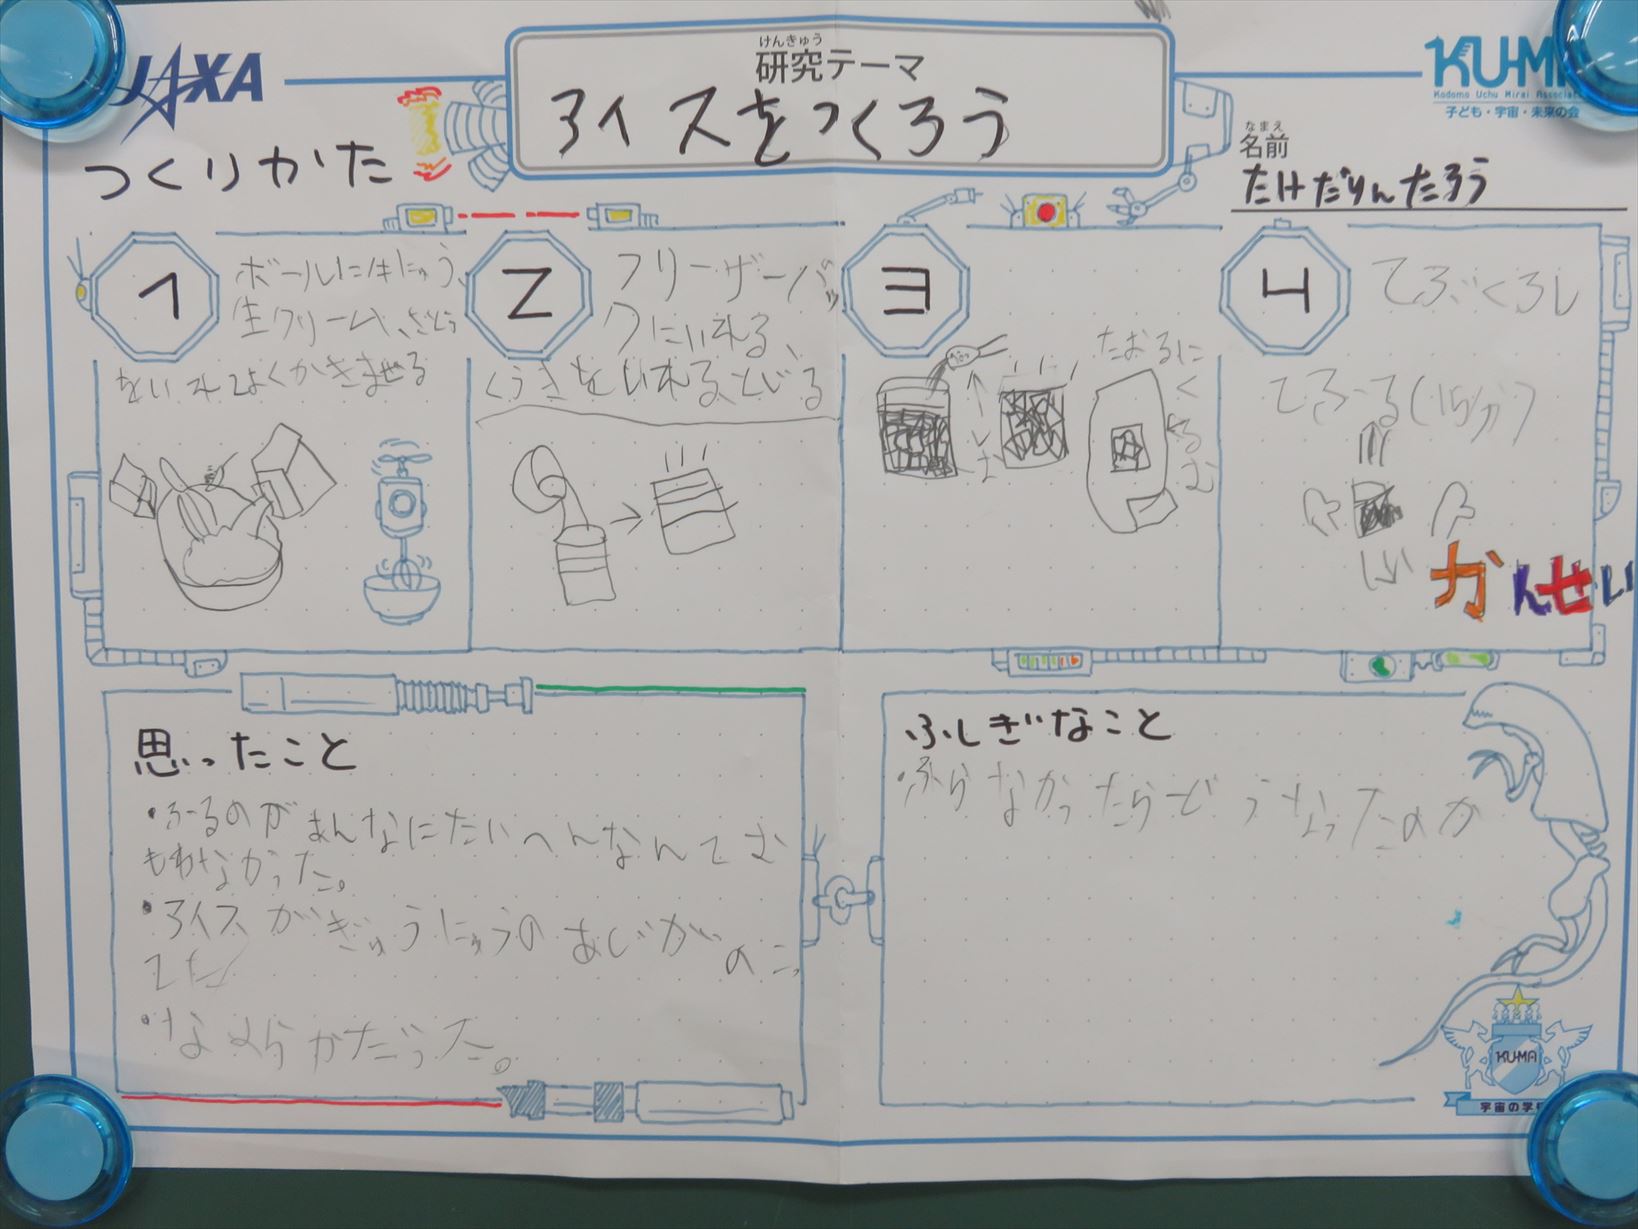 JAXA
けんきゅう
研究テーマ
アイスをつくろう
KU-MA
Kodomo Uchu Mirai Associat
子ども・宇宙・未来の会
なまえ
名前
たけだりんたろう
つくりかた
1
ボールに牛にゅう、
生クリーム、さとう
をいれてよくかきまぜる
2
フリーザーバッ
クにいれる、
くうきをいれる、とじる
3
しお
↑
しお
たおるに
くるむ
4
てぶくろし
てふーる(15分)
かんせい
思ったこと
・ふーるのがまんなにたいへんなんてむ
もわなかった。
・アイスがぎゅうにゅうのあじがのこっ
てた
・なめらかだった。
ふしぎなこと
・ふらなかったらどうなったのか
KU-MA
宇宙の学校